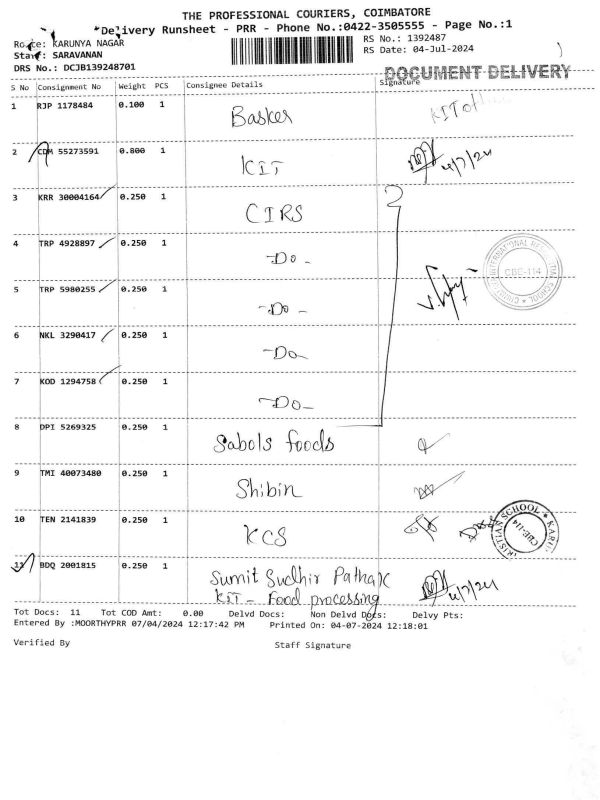 THE PROFESSIONAL COURIERS, COIMBATORE
"Delivery Runsheet - PRR - Phone No.:0422-3505555 - Page No.:1
KARUNYA NAGAR
RS No.: 1392487
SARAVANAN
RS Date: 04-Jul-2024
DRS No.: DCJB139248701
DOCUMENT DELIVERY
S No Consignment No Weight PCS Consignee Details Signature
1 RJP 1178484 0.100 1 Basker KIT
2 CDM 55273591 0.800 1 KIT 4/7/24
3 KRR 30004164 0.250 1 CIRS
4 TRP 4928897 0.250 1 -Do-
5 TRP 5980255 0.250 1 -Do-
6 NKL 3290417 0.250 1 -Do-
7 KOD 1294758 0.250 1 -Do-
8 DPI 5269325 0.250 1 Sabols foods
9 TMI 40073480 0.250 1 Shibin
10 TEN 2141839 0.250 1 KCS
11 BDQ 2001815 0.250 1 Sumit Sudhir Pathak
KIT - Food processing 4/7/24
INTERNATIONAL SCHOOL
CBE-114
SCHOOL
CBE-114
Tot Docs: 11 Tot COD Amt: 0.00 Delvd Docs: Non Delvd Docs: Delvy Pts:
Entered By :MOORTHYPRR 07/04/2024 12:17:42 PM Printed On: 04-07-2024 12:18:01
Verified By Staff Signature